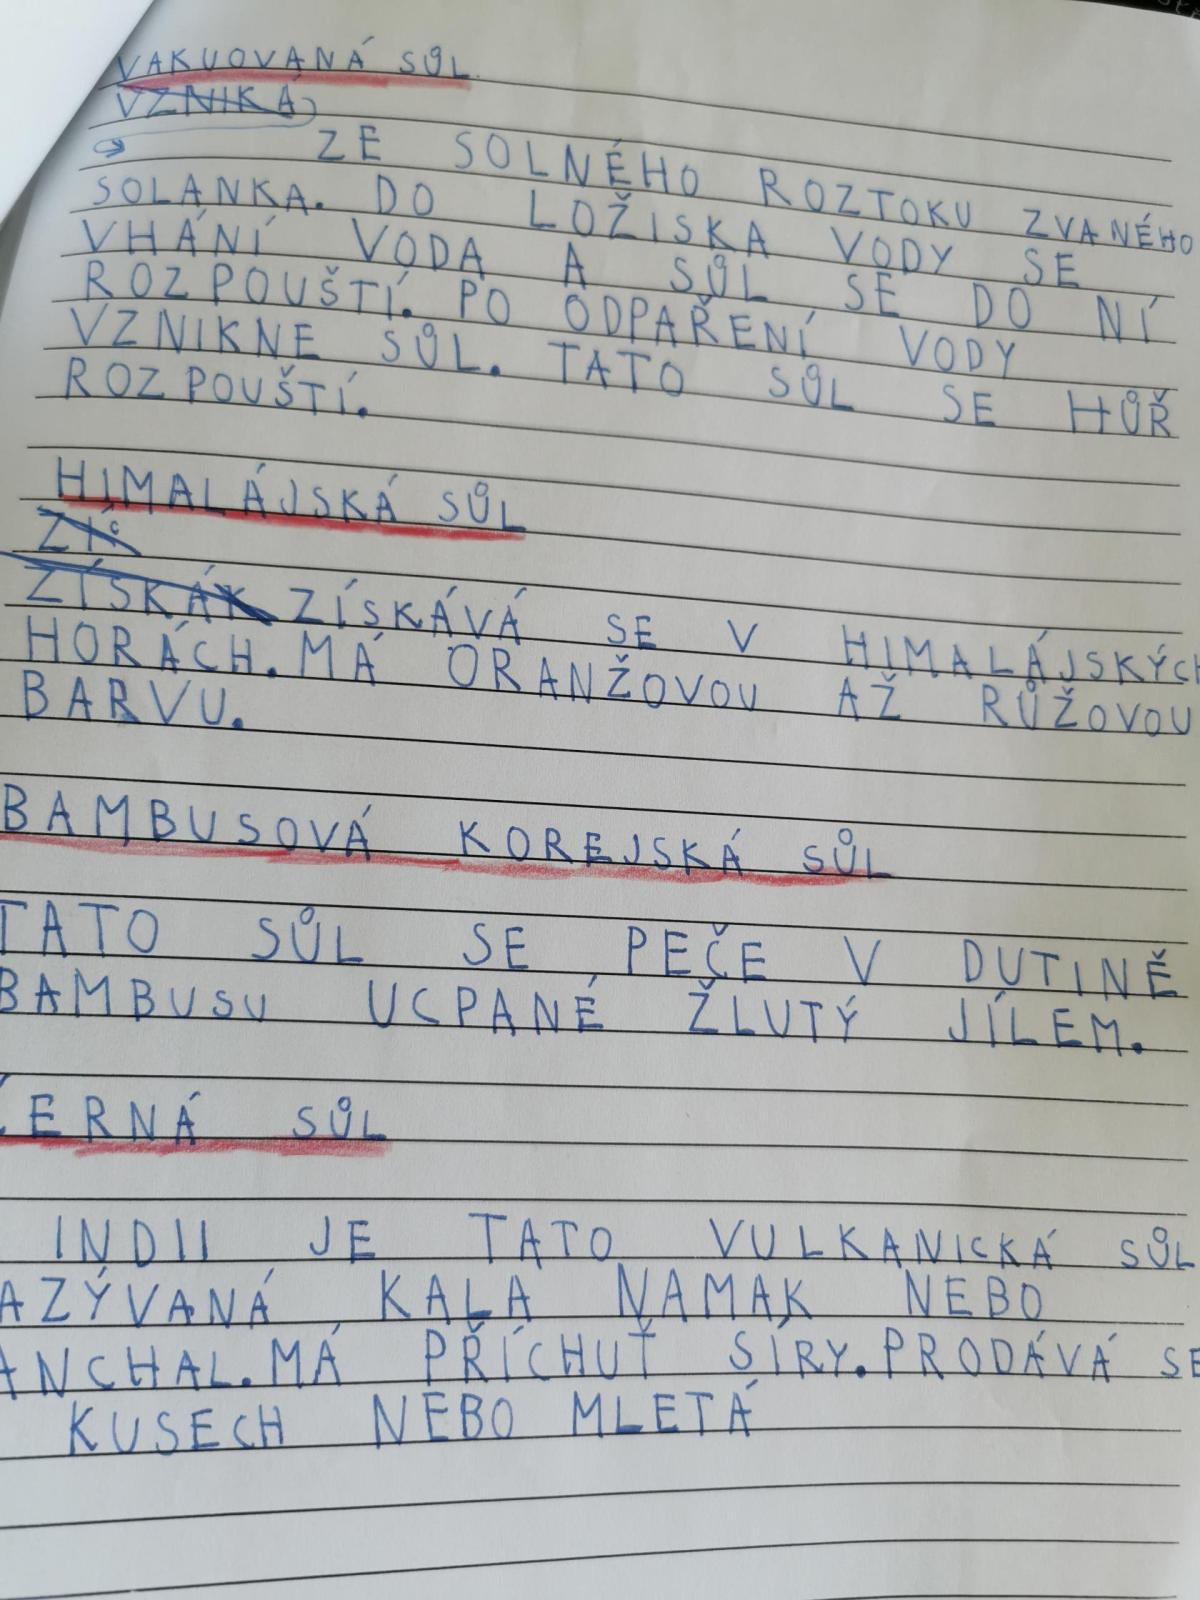 VAKUOVANÁ SŮL
VZNIKÁ
ZE SOLNÉHO ROZTOKU ZVANÉHO
SOLANKA. DO LOŽISKA VODY SE
VHÁNÍ VODA A SŮL SE DO NÍ
ROZPOUŠTÍ. PO ODPAŘENÍ VODY
VZNIKNE SŮL. TATO SŮL SE HŮŘ
ROZPOUŠTÍ.
HIMALÁJSKÁ SŮL
ZÍSKÁVÁ SE V HIMALÁJSKÝCH
HORÁCH. MÁ ORANŽOVOU AŽ RŮŽOVOU
BARVU.
BAMBUSOVÁ KOREJSKÁ SŮL
TATO SŮL SE PEČE V DUTINĚ
BAMBUSU UCPANÉ ŽLUTÝ JÍLEM.
ČERNÁ SŮL
INDII JE TATO VULKANICKÁ SŮL
AZÝVANÁ KALA NAMAK NEBO
ANCHAL. MÁ PŘÍCHUŤ SÍRY. PRODÁVÁ SE
KUSECH NEBO MLETÁ